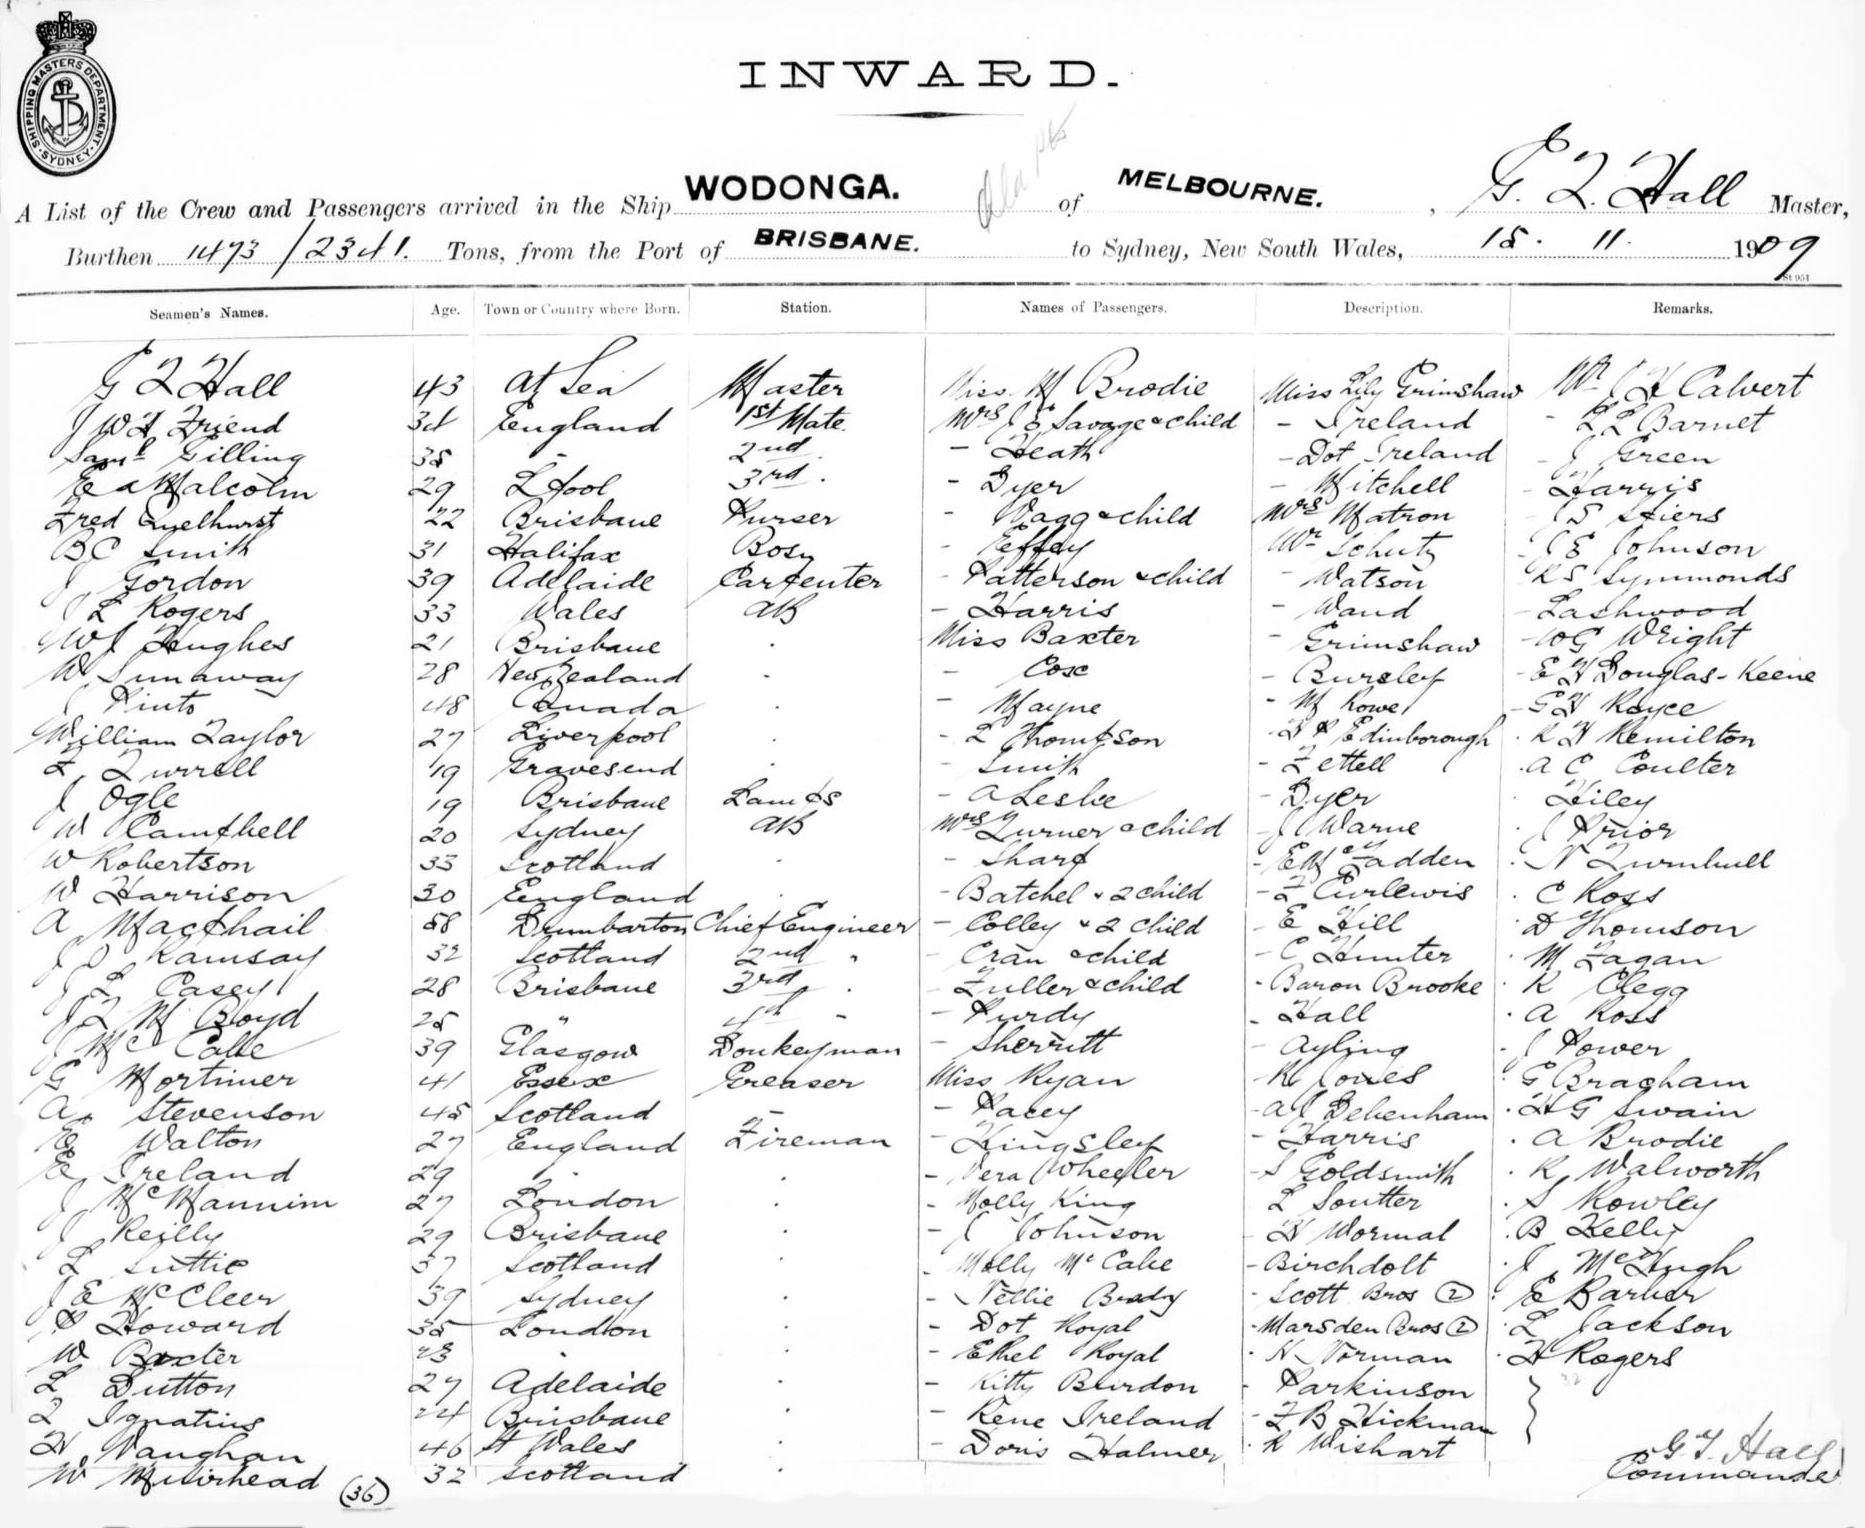 SHIPPING MASTERS DEPARTMENT. SYDNEY.
INWARD.
A List of the Crew and Passengers arrived in the Ship WODONGA. of MELBOURNE. , G. T. Hall Master,
Burthen 1473/2341. Tons, from the Port of BRISBANE. to Sydney, New South Wales, 15. 11. 1909
Seamen's Names. Age. Town or Country where Born. Station. Names of Passengers. Description. Remarks.
G T Hall 43 At Sea Master Miss M Brodie Miss Lily Grimshaw Mr J H Calvert
J W H Friend 34 England 1st Mate Mrs J E Savage & child - Ireland - L L Barnet
Saml Gilling 35 - 2nd - Heath - Dot Ireland - J Green
E A Malcolm 29 L'pool 3rd - Dyer - Mitchell - Harris
Fred 22 Brisbane Purser - Wagg & child Mrs Matron - J S Stiers
B C Smith 31 Halifax Bosn - Mr Schutz - J E Johnson
J Gordon 39 Adelaide Carpenter - Patterson & child - Watson - R S Symmonds
J L Rogers 33 Wales AB - Harris - Wand - Lashwood
W J Hughes 21 Brisbane . Miss Baxter - Grimshaw - W G Wright
W Sunaway 28 New Zealand . - Cox - Bursley - E H Douglas-Keene
J Pinto 48 Canada . - Mayne - M Rowe - G H Royce
William Taylor 27 Liverpool . - L Thompson - Edinborough . R H Hemilton
F. Turrell 19 Gravesend . - Smith - Zettell . A C Coulter
J Ogle 19 Brisbane Lamps - A Leslie - Dyer Hiley
W Campbell 20 Sydney AB Mrs Turner & child - J Warne . J Prior
W Robertson 33 Scotland . - Sharp - E McFadden . N Turnbull
W Harrison 30 England . - Batchel & 2 child - F Curlewis . C Ross
A Macphail 58 Dumbarton Chief Engineer - Colley & 2 child - E Hill . D Thomson
J D Ramsay 32 Scotland 2nd " - Cran & child - C Hunter . M Fagan
J L Casey 28 Brisbane 3rd . - Fuller & child - Baron Brooke . R Clegg
J T M Boyd 25 " 4th - - Purdy - Hall . A Ross
J McCabe 39 Glasgow Donkeyman - Sherritt - Ayling - J Power
G Mortimer 41 Essex Greaser Miss Ryan - R Jones . G Bragham
A. Stevenson 45 Scotland - - Pacey - A J Debenham . H G Swain
E Walton 27 England Fireman - Kingsley - Harris . A Brodie
E Ireland 29 . . - Vera Wheeler - S Goldsmith . R Walworth
J McMannim 27 London . - Molly King - L Soutter . S Rowley
J Reilly 29 Brisbane . - J Johnson - H Wormal . B Kelly
L Suttie 37 Scotland . - Molly McCabe - Birchdolt . J McHugh
J E McCleer 39 Sydney . - Nellie Brady - Scott Bros (2) . E Barber
P Howard 35 London . - Dot Royal - Marsden Bros (2) . L Jackson
W Baxter 23 . . - Ethel Royal . N Norman . H Rogers
L Dutton 27 Adelaide . - Kitty Burdon - Parkinson
T Ignatius 24 Brisbane . - Rene Ireland - F B Hickman
H Vaughan 46 Wales . - Doris Halmer . R Wishart G. T. Hall
W Muirhead (36) 32 Scotland . Commander